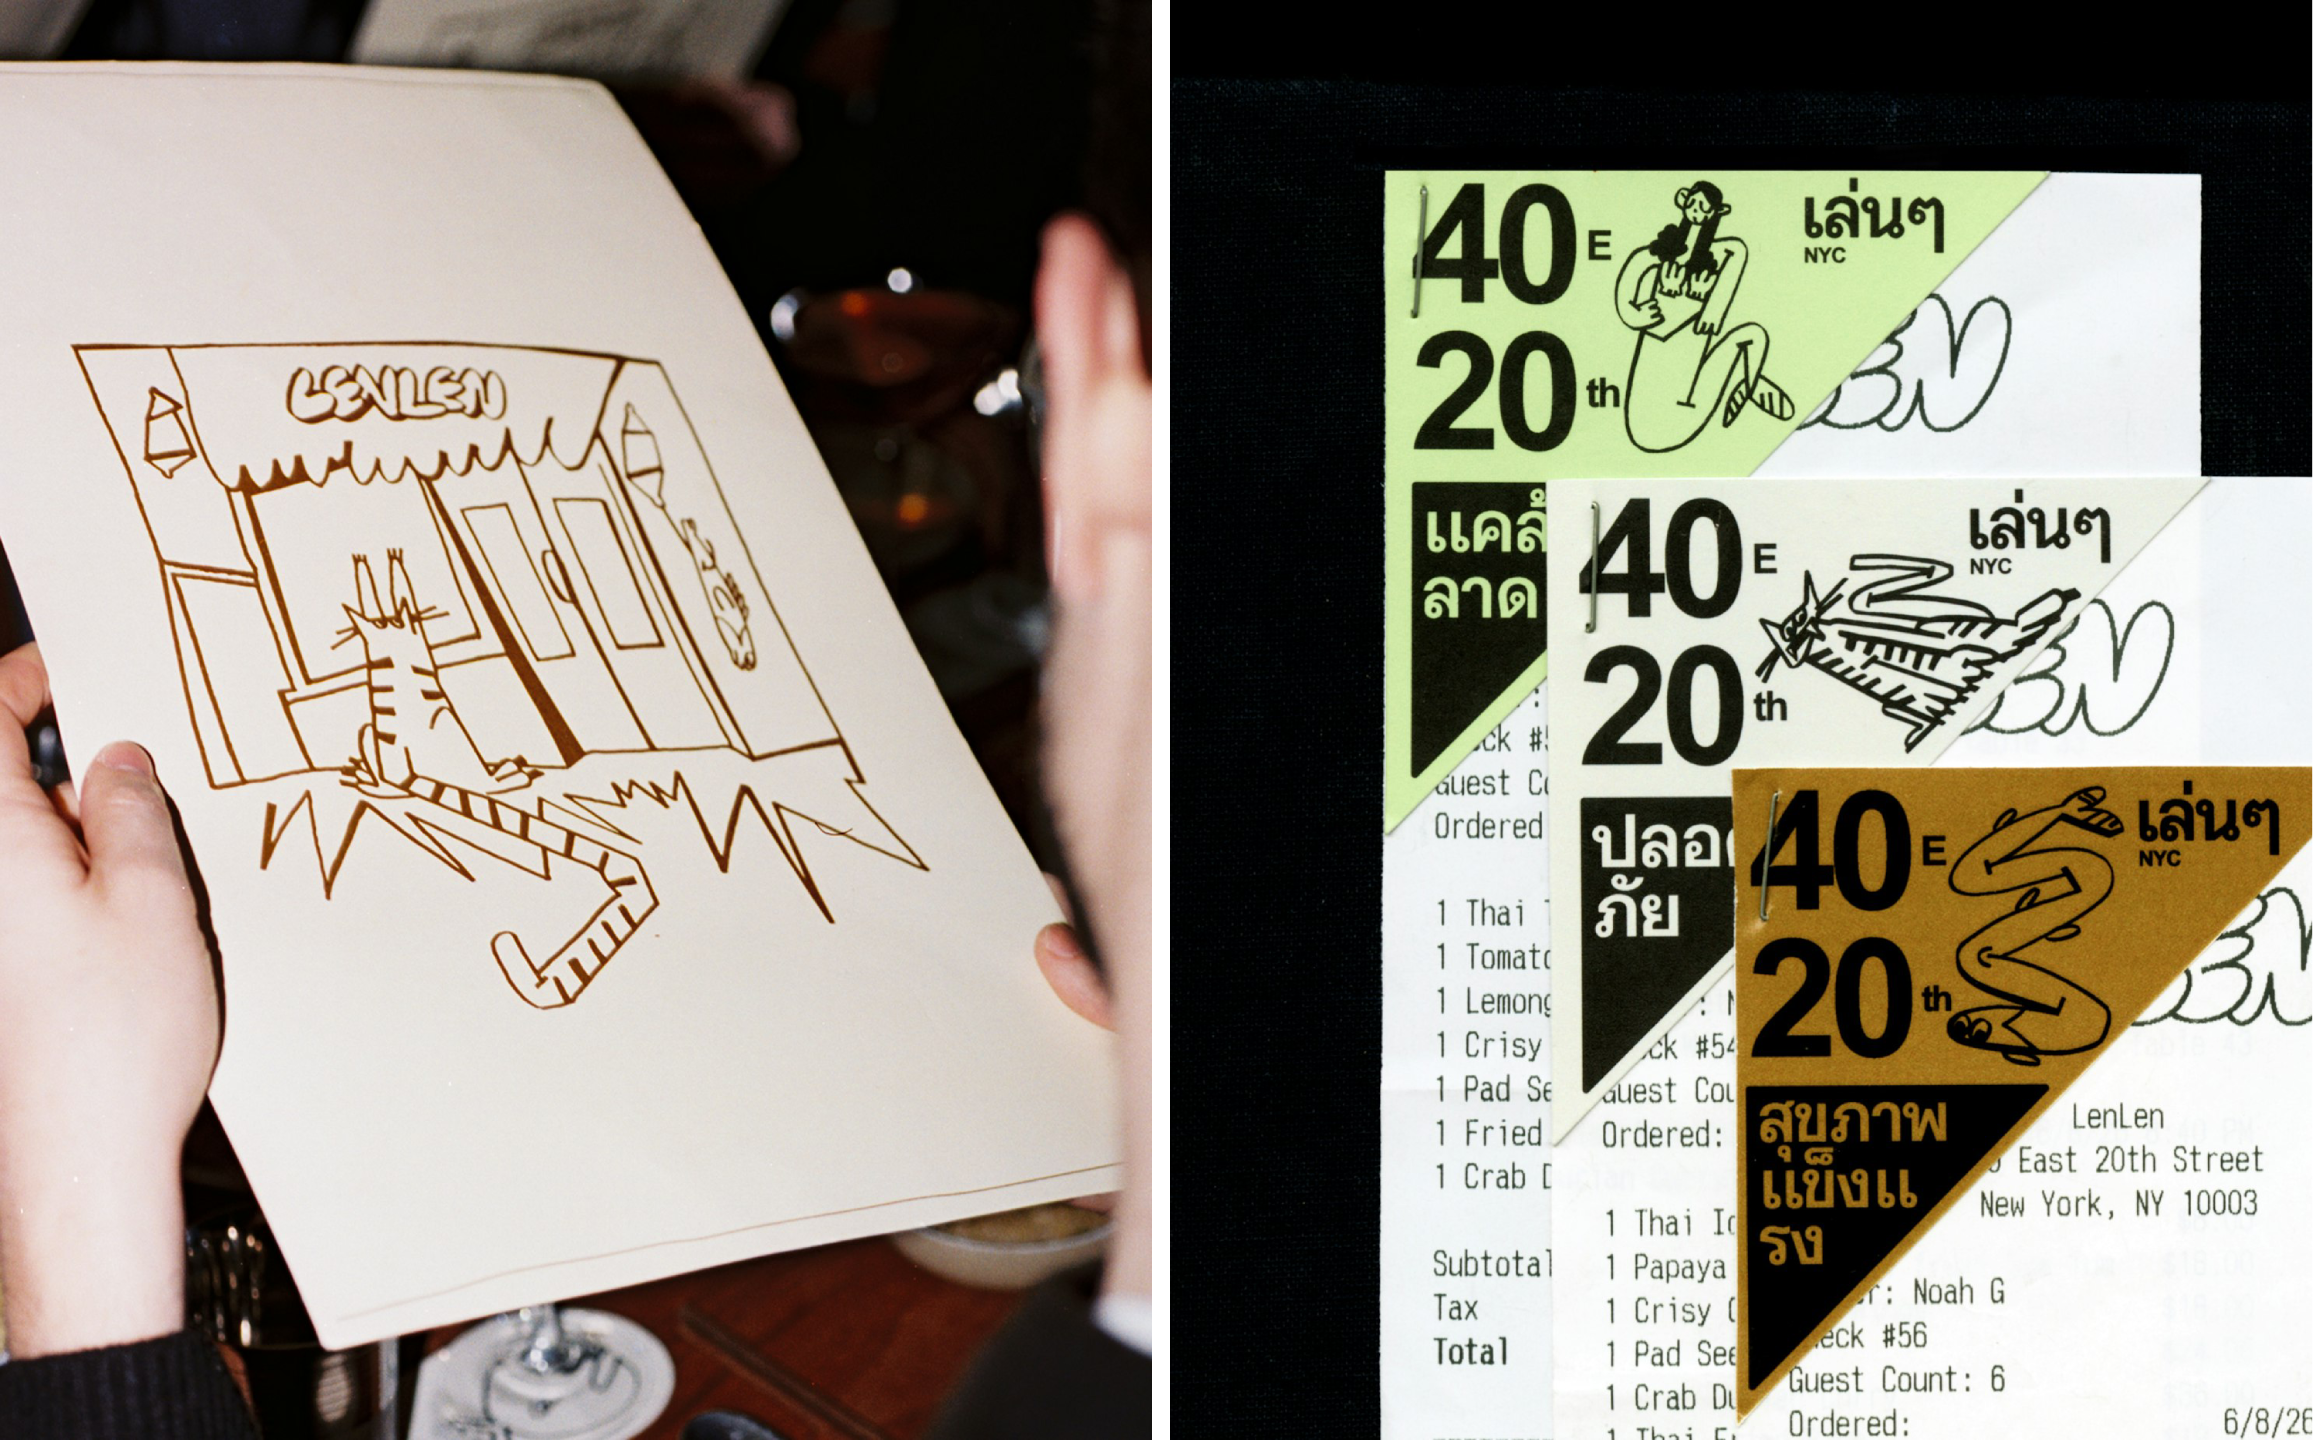 LENLEN
40 E
20 th
เล่นๆ
NYC
EN
แคล้
ลาด
40 E
20 th
เล่นๆ
NYC
EN
ck #5
Guest Co
Ordered
1 Thai
1 Tomato
1 Lemong
1 Crisy
1 Pad Se
1 Fried
1 Crab D
Subtotal
Tax
Total
ปลอด
ภัย
ck #54
Guest Cou
Ordered:
1 Thai Ic
1 Papaya
1 Crisy
1 Pad See
1 Crab Du
1 Thai
40 E
20 th
เล่นๆ
NYC
EN
สุขภาพ
แข็งแ
รง
LenLen
East 20th Street
New York, NY 10003
r: Noah G
eck #56
Guest Count: 6
Ordered:
6/8/26